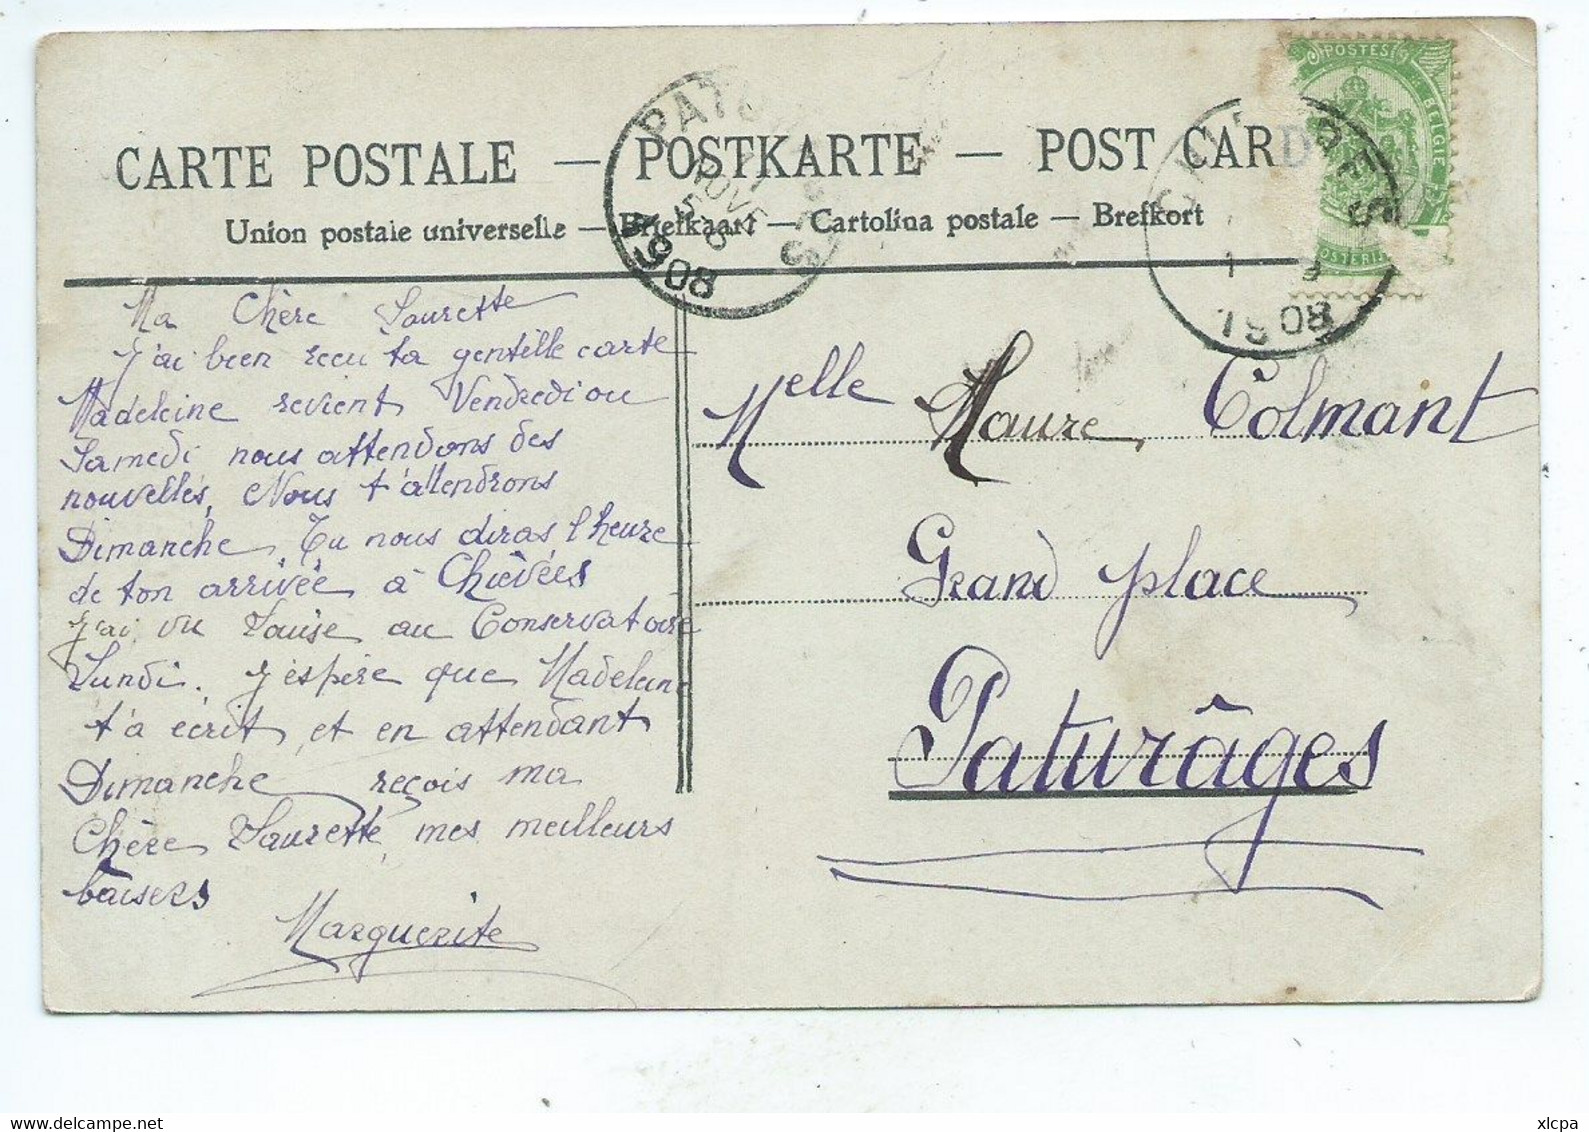 CARTE POSTALE — POSTKARTE — POST CARD
Union postale universelle — Briefkaart — Cartolina postale — Brefkort
POSTES
BELGIE
1908
1908
CHIEVRES
Ma Chère Laurette
J'ai bien reçu ta gentille carte
Madeleine revient Vendredi ou
Samedi nous attendons des
nouvelles, Nous t'attendrons
Dimanche, Tu nous diras l'heure
de ton arrivée à Chièvres
J'ai vu Louise au Conservatoire
Lundi. J'espère que Madeleine
t'a écrit et en attendant
Dimanche reçois ma
Chère Laurette, mes meilleurs
baisers
Marguerite
Melle Laure Colmant
Grand place
Paturâges
xlcpa
www.delcampe.net